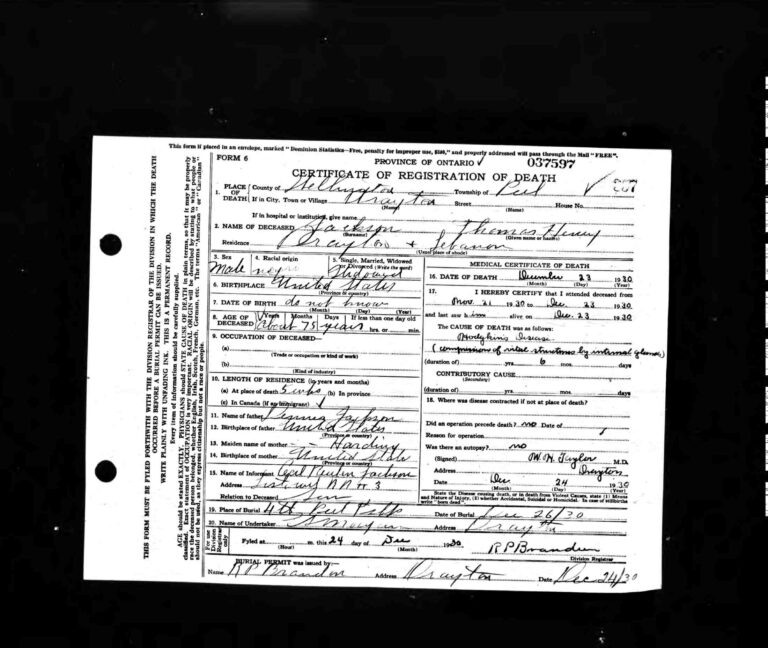 This form if placed in an envelope, marked "Dominion Statistics—Free, penalty for improper use, $300," and properly addressed will pass through the Mail "FREE".
FORM 6
PROVINCE OF ONTARIO
037597
CERTIFICATE OF REGISTRATION OF DEATH
THIS FORM MUST BE FYLED FORTHWITH WITH THE DIVISION REGISTRAR OF THE DIVISION IN WHICH THE DEATH
OCCURRED BEFORE A BURIAL PERMIT CAN BE ISSUED.
WRITE PLAINLY WITH UNFADING INK. THIS IS A PERMANENT RECORD.
Every item of information should be carefully supplied.
1. PLACE OF DEATH County of Wellington Township of Peel
If in City, Town or Village Drayton (Name) Street (Name) House No.
If in hospital or institution, give name
2. NAME OF DECEASED Jackson (Surname) Thomas Henry (Given name or names)
Residence Drayton Lebanon (Usual place of abode)
3. Sex Male
4. Racial origin negro
5. Single, Married, Widowed or Divorced (Write the word) Widowed
6. BIRTHPLACE United States (Province or country)
7. DATE OF BIRTH do not know (Month) (Day) (Year)
8. AGE OF DECEASED Years Months Days If less than one day
about 75 years hrs. or min.
9. OCCUPATION OF DECEASED—
(a) (Trade or occupation or kind of work)
(b) (Kind of industry)
10. LENGTH OF RESIDENCE (in years and months)
(a) At place of death 5 wks (b) In province
(c) In Canada (if an immigrant)
11. Name of father Jackson
12. Birthplace of father United States (Province or country)
13. Maiden name of mother Harding
14. Birthplace of mother United States (Province or country)
15. Name of Informant Jackson
Address Listowel R.R. # 3
Relation to Deceased Son
MEDICAL CERTIFICATE OF DEATH
16. DATE OF DEATH December 23 1930
(Month) (Day) (Year)
17. I HEREBY CERTIFY that I attended deceased from
Nov. 21 1930 to Dec. 23 1930
and last saw him alive on Dec. 23 1930
The CAUSE OF DEATH was as follows:
Hodgkins Disease.
(compression of vital structures by internal glands)
(duration of) yrs. 6 mos. days
CONTRIBUTORY CAUSE (Secondary)
(duration of) yrs. mos. days
18. Where was disease contracted if not at place of death?
Did an operation precede death? no Date of
Reason for operation
Was there an autopsy? no
(Signed) W. H. Taylor M.D.
Address Drayton
Date Dec 24 1930
(Month) (Day) (Year)
State the Disease causing death, or in death from Violent Causes, state (1) Means and Nature of Injury, (2) whether Accidental, Suicidal or Homicidal. In case of stillbirths write "born dead".
19. Place of Burial 4th Peel Date of Burial Dec 26/30
20. Name of Undertaker Address Drayton
For use Division Registrar only
Fyled at (Hour) m. this 24 day of Dec (Month) 1930 R P Brandon
Division Registrar
BURIAL PERMIT was issued by—
Name R P Brandon Address Drayton Date Dec 24/30